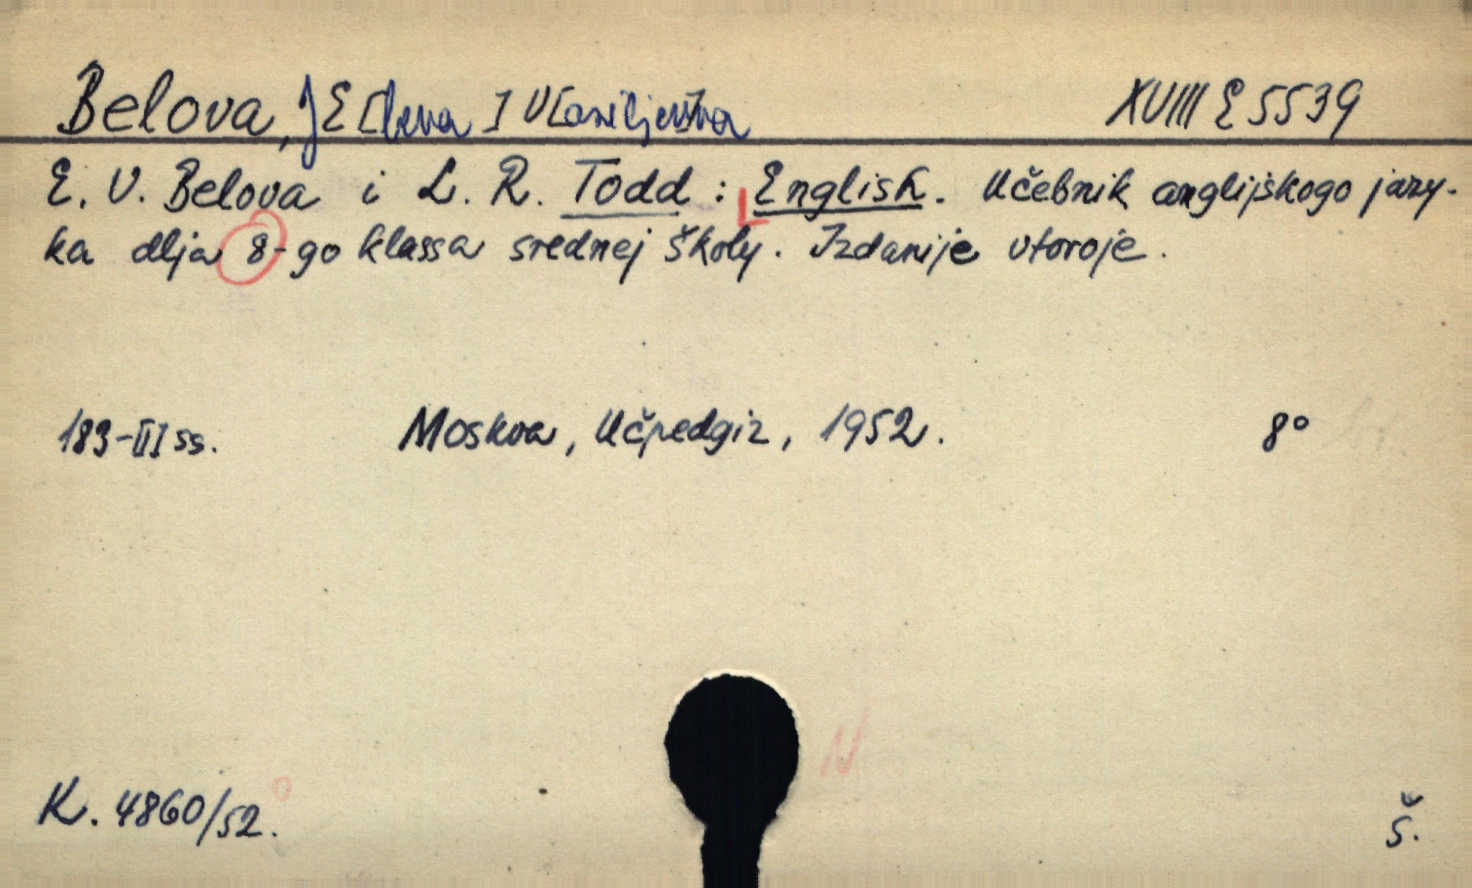 Belova, JE[lena] V[asiljevna XVIII E 5539
E. V. Belova i L. R. Todd : English. Učebnik anglijskogo jazy-
ka dlja 8-go klassa srednej školy. Izdanije vtoroje.
183-III ss. Moskva, Učpedgiz, 1952. 8°
N
K. 4860/52. Š.